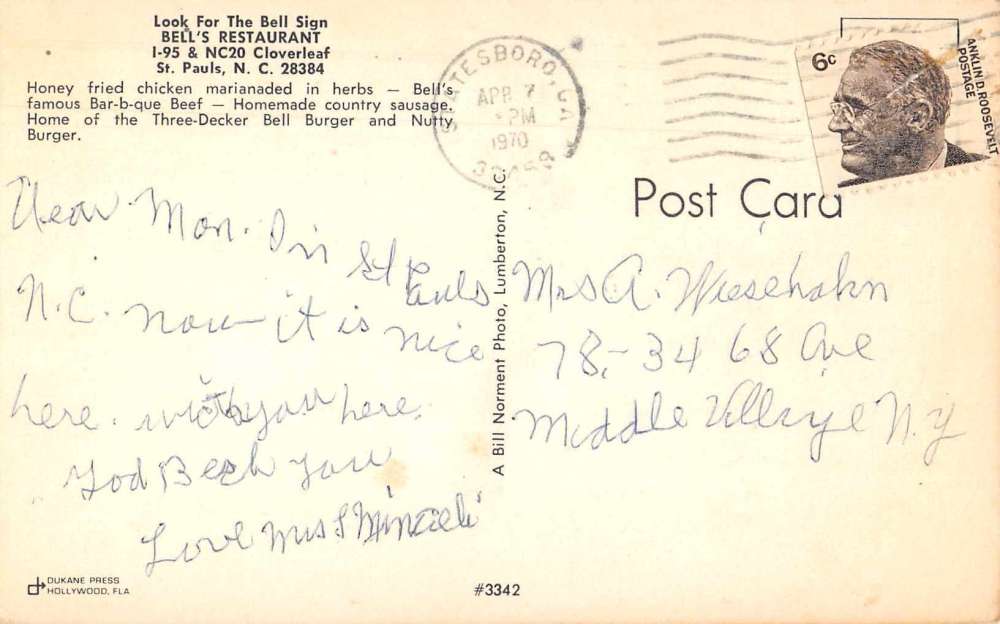 Look For The Bell Sign
BELL'S RESTAURANT
I-95 & NC20 Cloverleaf
St. Pauls, N. C. 28384
Honey fried chicken marianaded in herbs — Bell's
famous Bar-b-que Beef — Homemade country sausage.
Home of the Three-Decker Bell Burger and Nutty
Burger.
Dear Mon. I'm St Pauls
N.C. now it is nice
here. with you here.
God Bech you
Love Mrs
DUKANE PRESS
HOLLYWOOD, FLA
A Bill Norment Photo, Lumberton, N.C.
#3342
STATESBORO, GA
APR 7
PM
1970
6c
ANKLIN D. ROOSEVELT
POSTAGE
Post Card
Mrs A. Wiesehahn
78-34 68 Ave
Middle Village N.Y